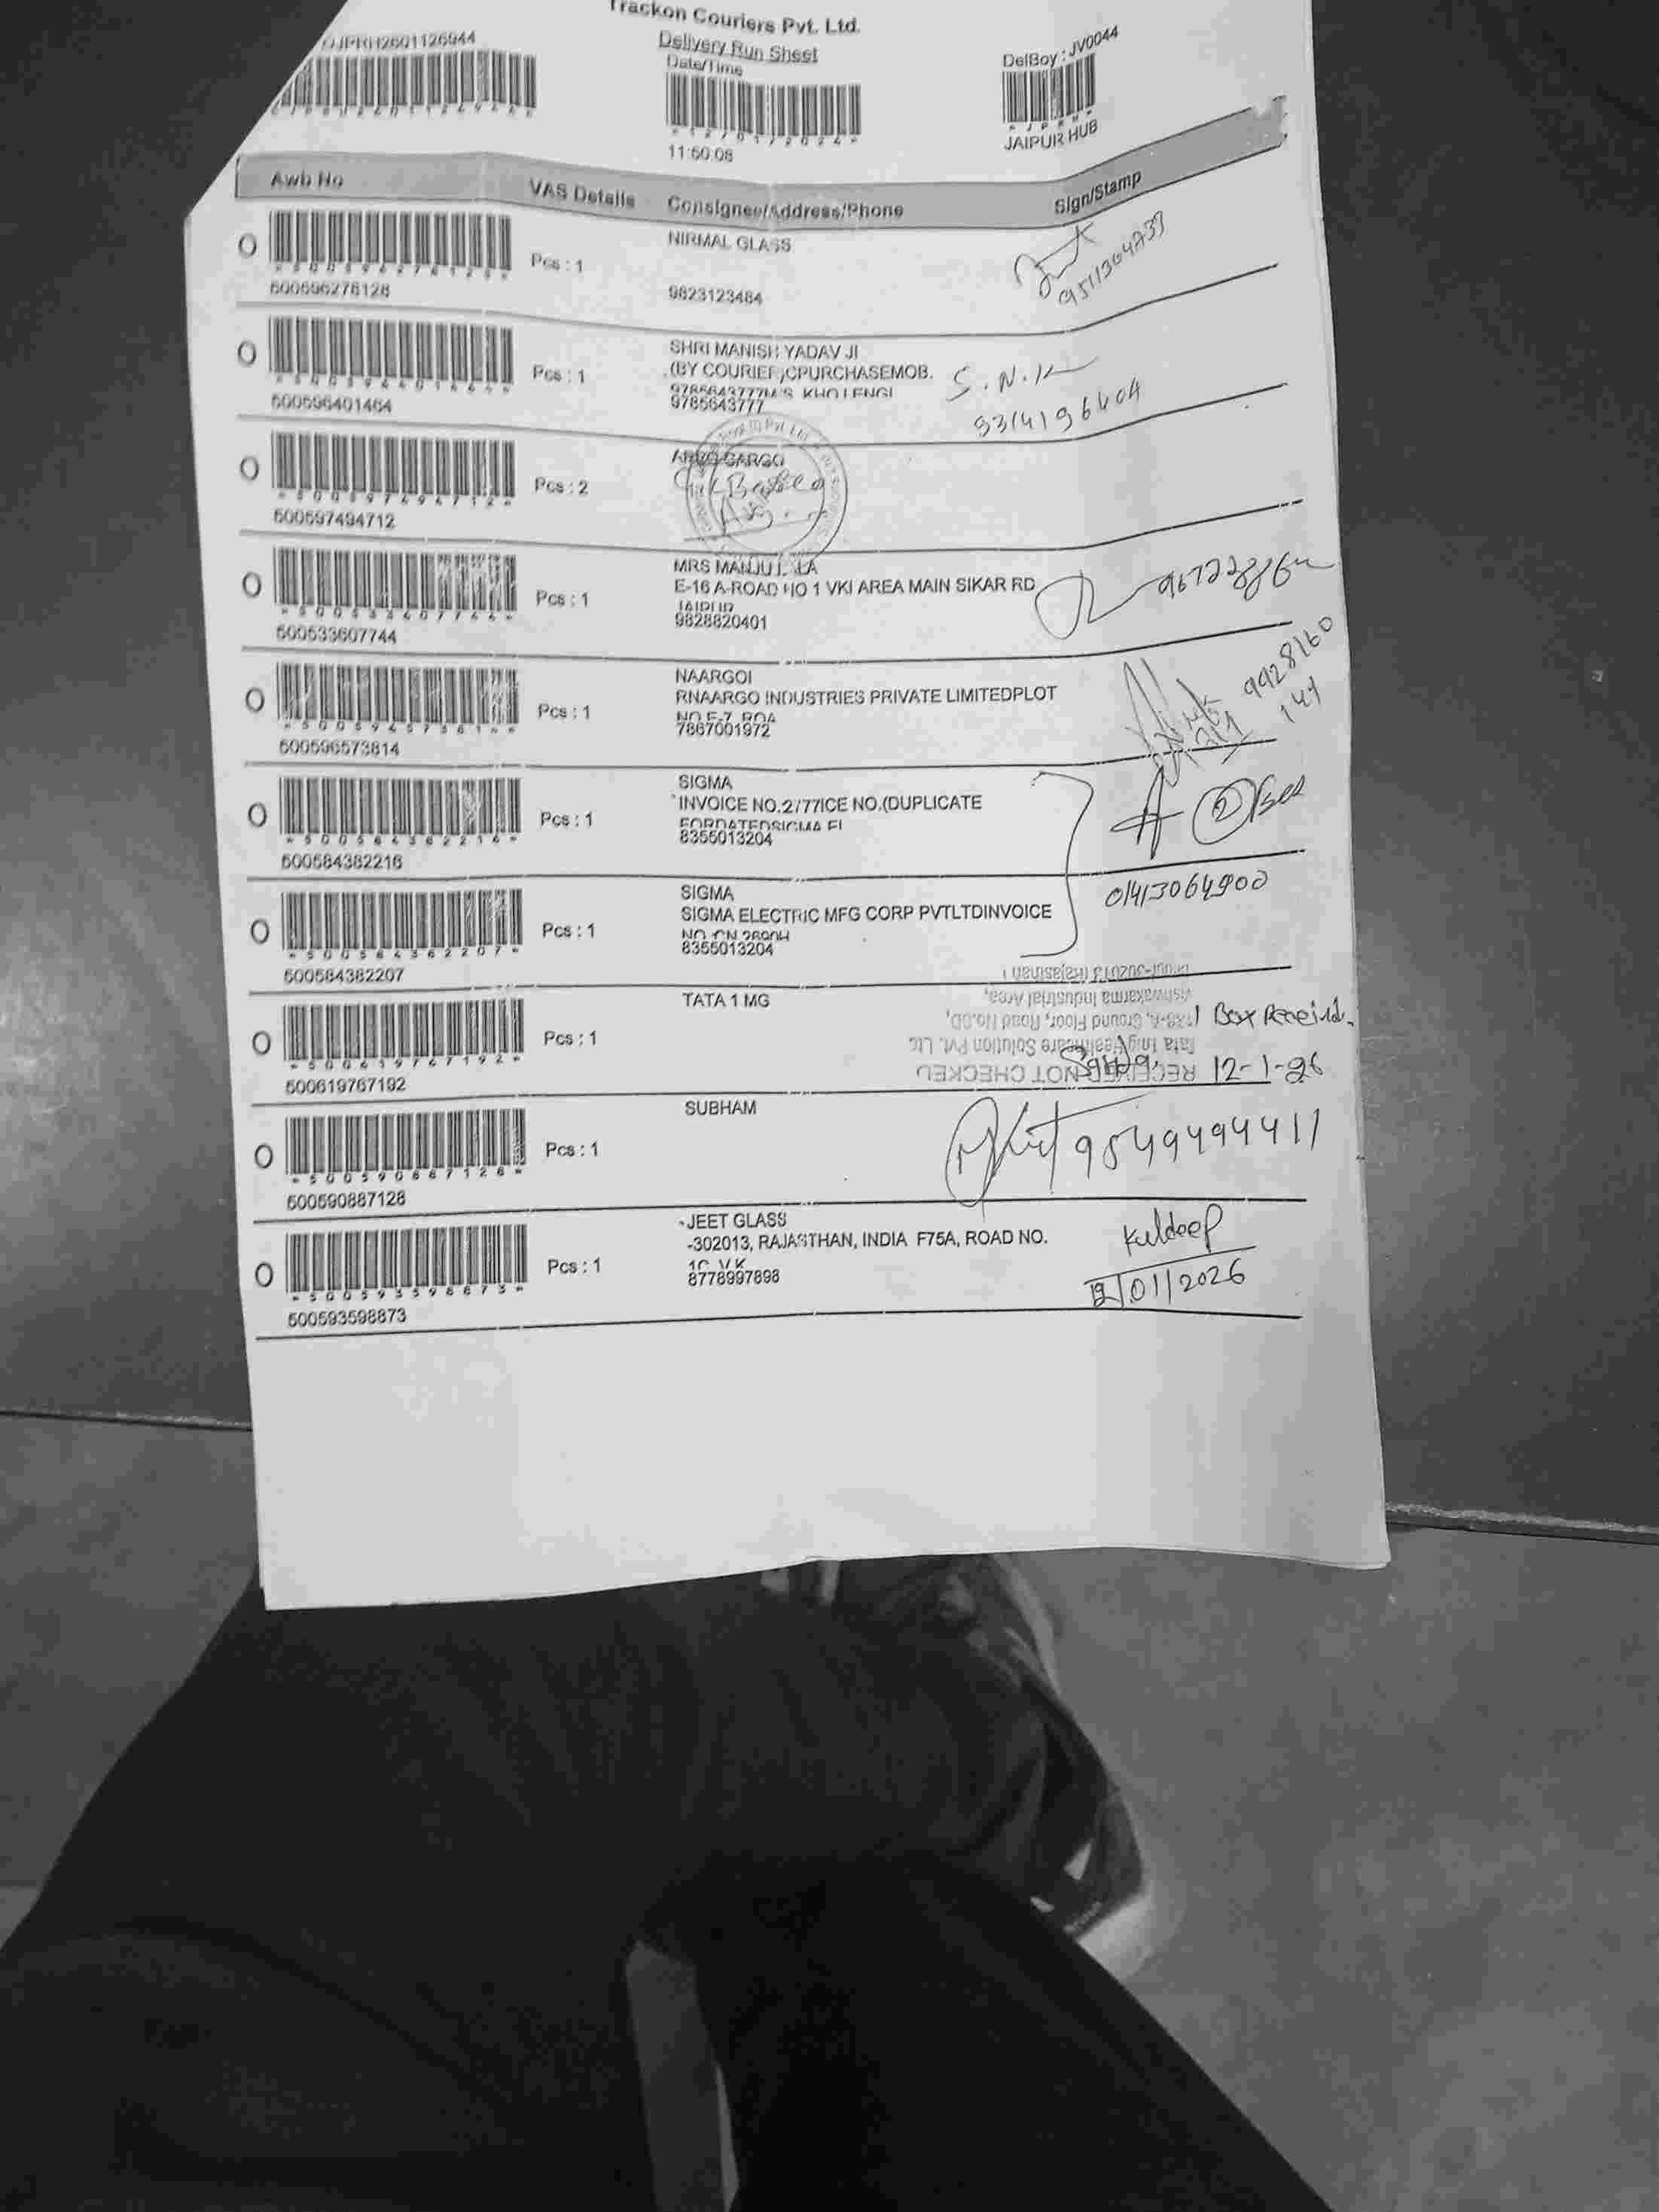 Trackon Couriers Pvt. Ltd.
Delivery Run Sheet
Date/Time
DelBoy : JV0044
11:50:08
JAIPUR HUB
Awb No VAS Details Consignee/Address/Phone Sign/Stamp
NIRMAL GLASS
Pcs : 1
500596276128 9823123484
SHRI MANISH YADAV JI
Pcs : 1 (BY COURIER)CPURCHASEMOB. S.N.
9785643777
500596401464 9314196404
CARGO
Pcs : 2
500597494712
MRS MANJU
E-16 A-ROAD NO 1 VKI AREA MAIN SIKAR RD
Pcs : 1 JAIPUR
500533607744 9828820401
NAARGOI
RNAARGO INDUSTRIES PRIVATE LIMITEDPLOT 9928160
Pcs : 1 NO E-7, ROA 149
500596573814 7867001972
SIGMA
INVOICE NO.2/77ICE NO.(DUPLICATE
Pcs : 1 FORDATEDSIGMA EL 2 Box
500584382216 8355013204
SIGMA 01413064900
SIGMA ELECTRIC MFG CORP PVTLTDINVOICE
Pcs : 1
500584382207 8355013204
TATA 1 MG
Pcs : 1
500619767192
RECEIVED NOT CHECKED
Tata 1mg Healthcare Solution Pvt. Ltd
Ground Floor, Road No.9D,
Vishwakarma Industrial Area,
(Rajasthan)
1 Box Received.
12-1-26
SUBHAM
Pcs : 1 9549494411
500590887128
-JEET GLASS
-302013, RAJASTHAN, INDIA F75A, ROAD NO. Kuldeep
Pcs : 1
500593598873 8778997898 12/01/2026